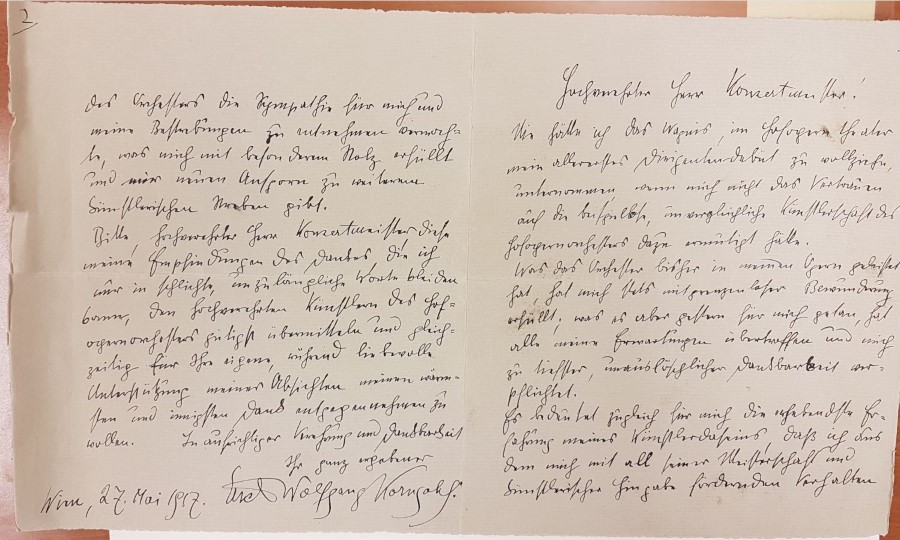 Hochverehrter Herr Konzertmeister!
Nie hätte ich das Wagnis, im Hofoperntheater
mein allererstes Dirigentendebut zu vollziehn,
unternommen wenn mich nicht das Vertrauen
auf die beispiellose, unvergleichliche Künstlerschaft des
Hofopernorchesters dazu ermutigt hätte.
Was das Orchester bisher in meinen Opern geleistet
hat, hat mich stets mit grenzenloser Bewunderung
erfüllt. was es aber gestern für mich getan, hat
alle meine Erwartungen übertroffen und mich
zu tiefster, unauslöschlicher Dankbarkeit ver-
pflichtet.
Es bedeutet zugleich für mich die erhebendste Er-
fahrung meines Künstlerdaseins, daß ich aus
dem mich mit all seiner Meisterschaft und
künstlerischer Hingabe fördernden Verhalten
2
des Orchesters die Sympathie für mich und
meine Bestrebungen zu entnehmen vermoch-
te, was mich mit besonderem Stolz erfüllt
und mir neuen Ansporn zu weiterem
künstlerischen Streben gibt.
Bitte, hochverehrter Herr Konzertmeister diese
meine Empfindungen des Dankes, die ich
nur in schlichte, unzulängliche Worte kleiden
kann, den hochverehrten Künstlern des Hof-
opernorchesters gütigst übermitteln und gleich-
zeitig für Ihre eigene, rührend liebevolle
Unterstützung meiner Absichten meinen wärm-
sten und innigsten Dank entgegennehmen zu
wollen. In aufrichtiger Verehrung und Dankbarkeit
Ihr ganz ergebener
Wien, 27. Mai 1917. Erich Wolfgang Korngold.